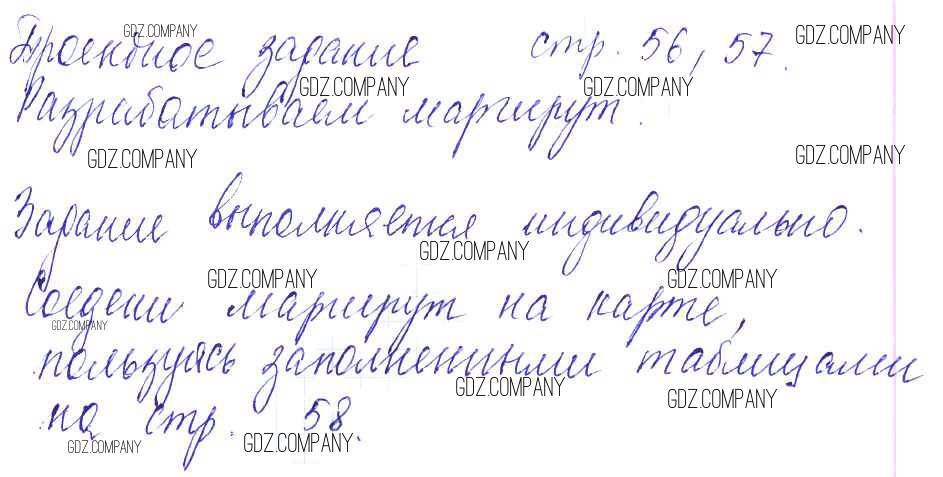 Проектное задание стр. 56, 57.
Разрабатываем маршрут.
Задание выполняется индивидуально.
Соедени маршрут на карте,
пользуясь заполненными таблицами
на стр. 58.
GDZ.COMPANY
GDZ.COMPANY
GDZ.COMPANY
GDZ.COMPANY
GDZ.COMPANY
GDZ.COMPANY
GDZ.COMPANY
GDZ.COMPANY
GDZ.COMPANY
GDZ.COMPANY
GDZ.COMPANY
GDZ.COMPANY
GDZ.COMPANY
GDZ.COMPANY